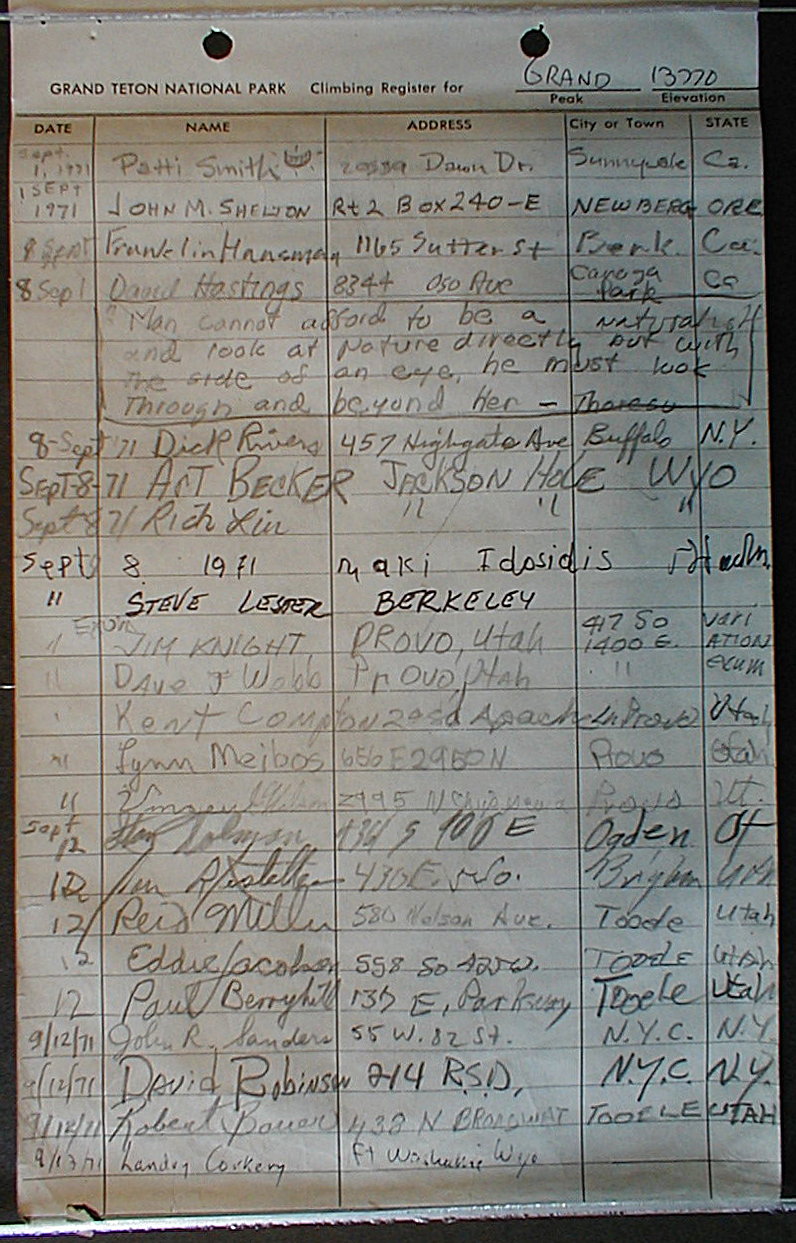 GRAND TETON NATIONAL PARK Climbing Register for GRAND 13770
Peak Elevation
DATE NAME ADDRESS City or Town STATE
Sept. 1, 1971 Patti Smith Dawn Dr. Sunnyvale Ca.
1 SEPT 1971 JOHN M. SHELTON Rt 2 Box 240-E NEWBERG ORE
8 Sept Franklin Hansman 1165 Sutter St Berk. Ca.
8 Sept David Hastings 8344 Oso Ave Canoga Park Ca
"Man cannot afford to be a naturalist
and look at Nature directly but with
the side of an eye, he must look
Through and beyond Her - Thoreau
8-Sept '71 Dick Rivers 457 Highgate Ave Buffalo N.Y.
SEPT-8-71 ART BECKER JACKSON HOLE WYO
Sept 8 71 Rich Lin " " "
Sept 8 1971 Maki Idosidis
" STEVE LESTER BERKELEY
" EXUM JIM KNIGHT, PROVO, Utah 417 So 1400 E. VARIATION EXUM
" Dave J Webb Provo, Utah "
" Kent Compton Apache Ln Provo Utah
" Lynn Meibos 656 E 2950 N Provo Utah
" 2995 N Provo Ut.
Sept 12 Holman 436 S 900 E Ogden UT
12 Jim 430 E. No. Brigham Utah
12 Reid Miller 580 Nelson Ave. Tooele Utah
12 Eddie Jacobson 558 So 425 W. TOOELE Utah
12 Paul Berryhill 135 E. Parkway Tooele Utah
9/12/71 John R. Sanders 55 W. 82 St. N.Y.C. N.Y.
9/12/71 DAVID ROBINSON 214 R.S.D. N.Y.C. N.Y.
9/12/71 Robert Bauer 438 N BROADWAY TOOELE UTAH
9/13/71 Landry Corkery Ft Washakie Wyo